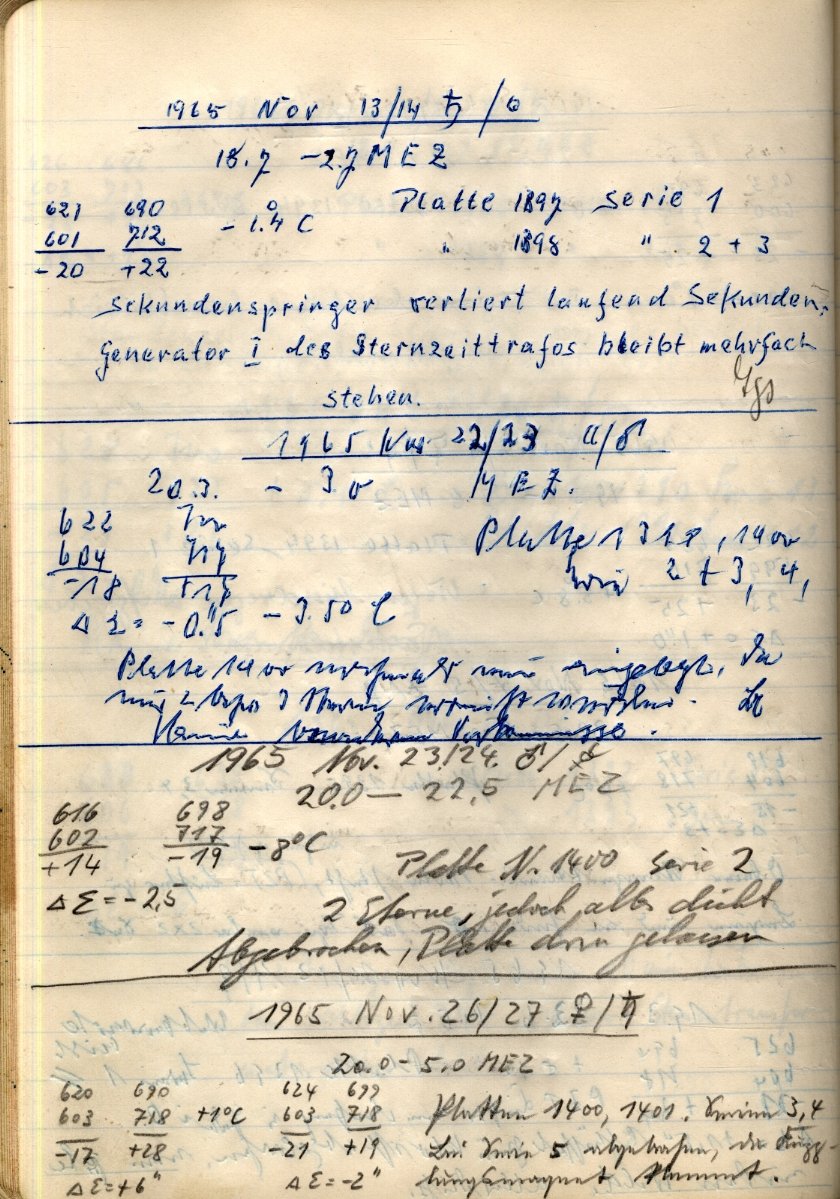 1965 Nov 13/14 ♄/☉
18.7 - 2.7 MEZ
621 690 - 1.4°C Platte 1897 Serie 1
601 712 " 1898 " 2 + 3
-20 +22
Sekundenspringer verliert laufend Sekunden,
Generator I des Sternzeittrafos bleibt mehrfach
stehen.
1965 Nov 22/23 ☾/♂
20.3. - 3.0 MEZ.
622
604 717
-18
Platte 1400
2 + 3, 4,
Δ Σ = -0."5 - 3.50 C
Platte 1400 nochmals eingelegt, da
nur 2 bezw 3 Sterne
1965 Nov. 23/24. ♂/☿
20.0 — 22,5 MEZ
616 698
602 717 - 8°C
+14 -19
Platte N. 1400 Serie 2
Δ Σ = - 2,5
2 Sterne, jedoch alles dicht
Abgebrochen, Platte drin gelassen
1965 Nov. 26/27 ♀/♄
20.0 - 5.0 MEZ
620 690 624 699
603 718 +1°C 603 718 Platten 1400, 1401. Serien 3, 4
-17 +28 -21 +19 Bei Serie 5 abgebrochen, da
Δ Σ = + 6" Δ Σ = - 2" klemmt.